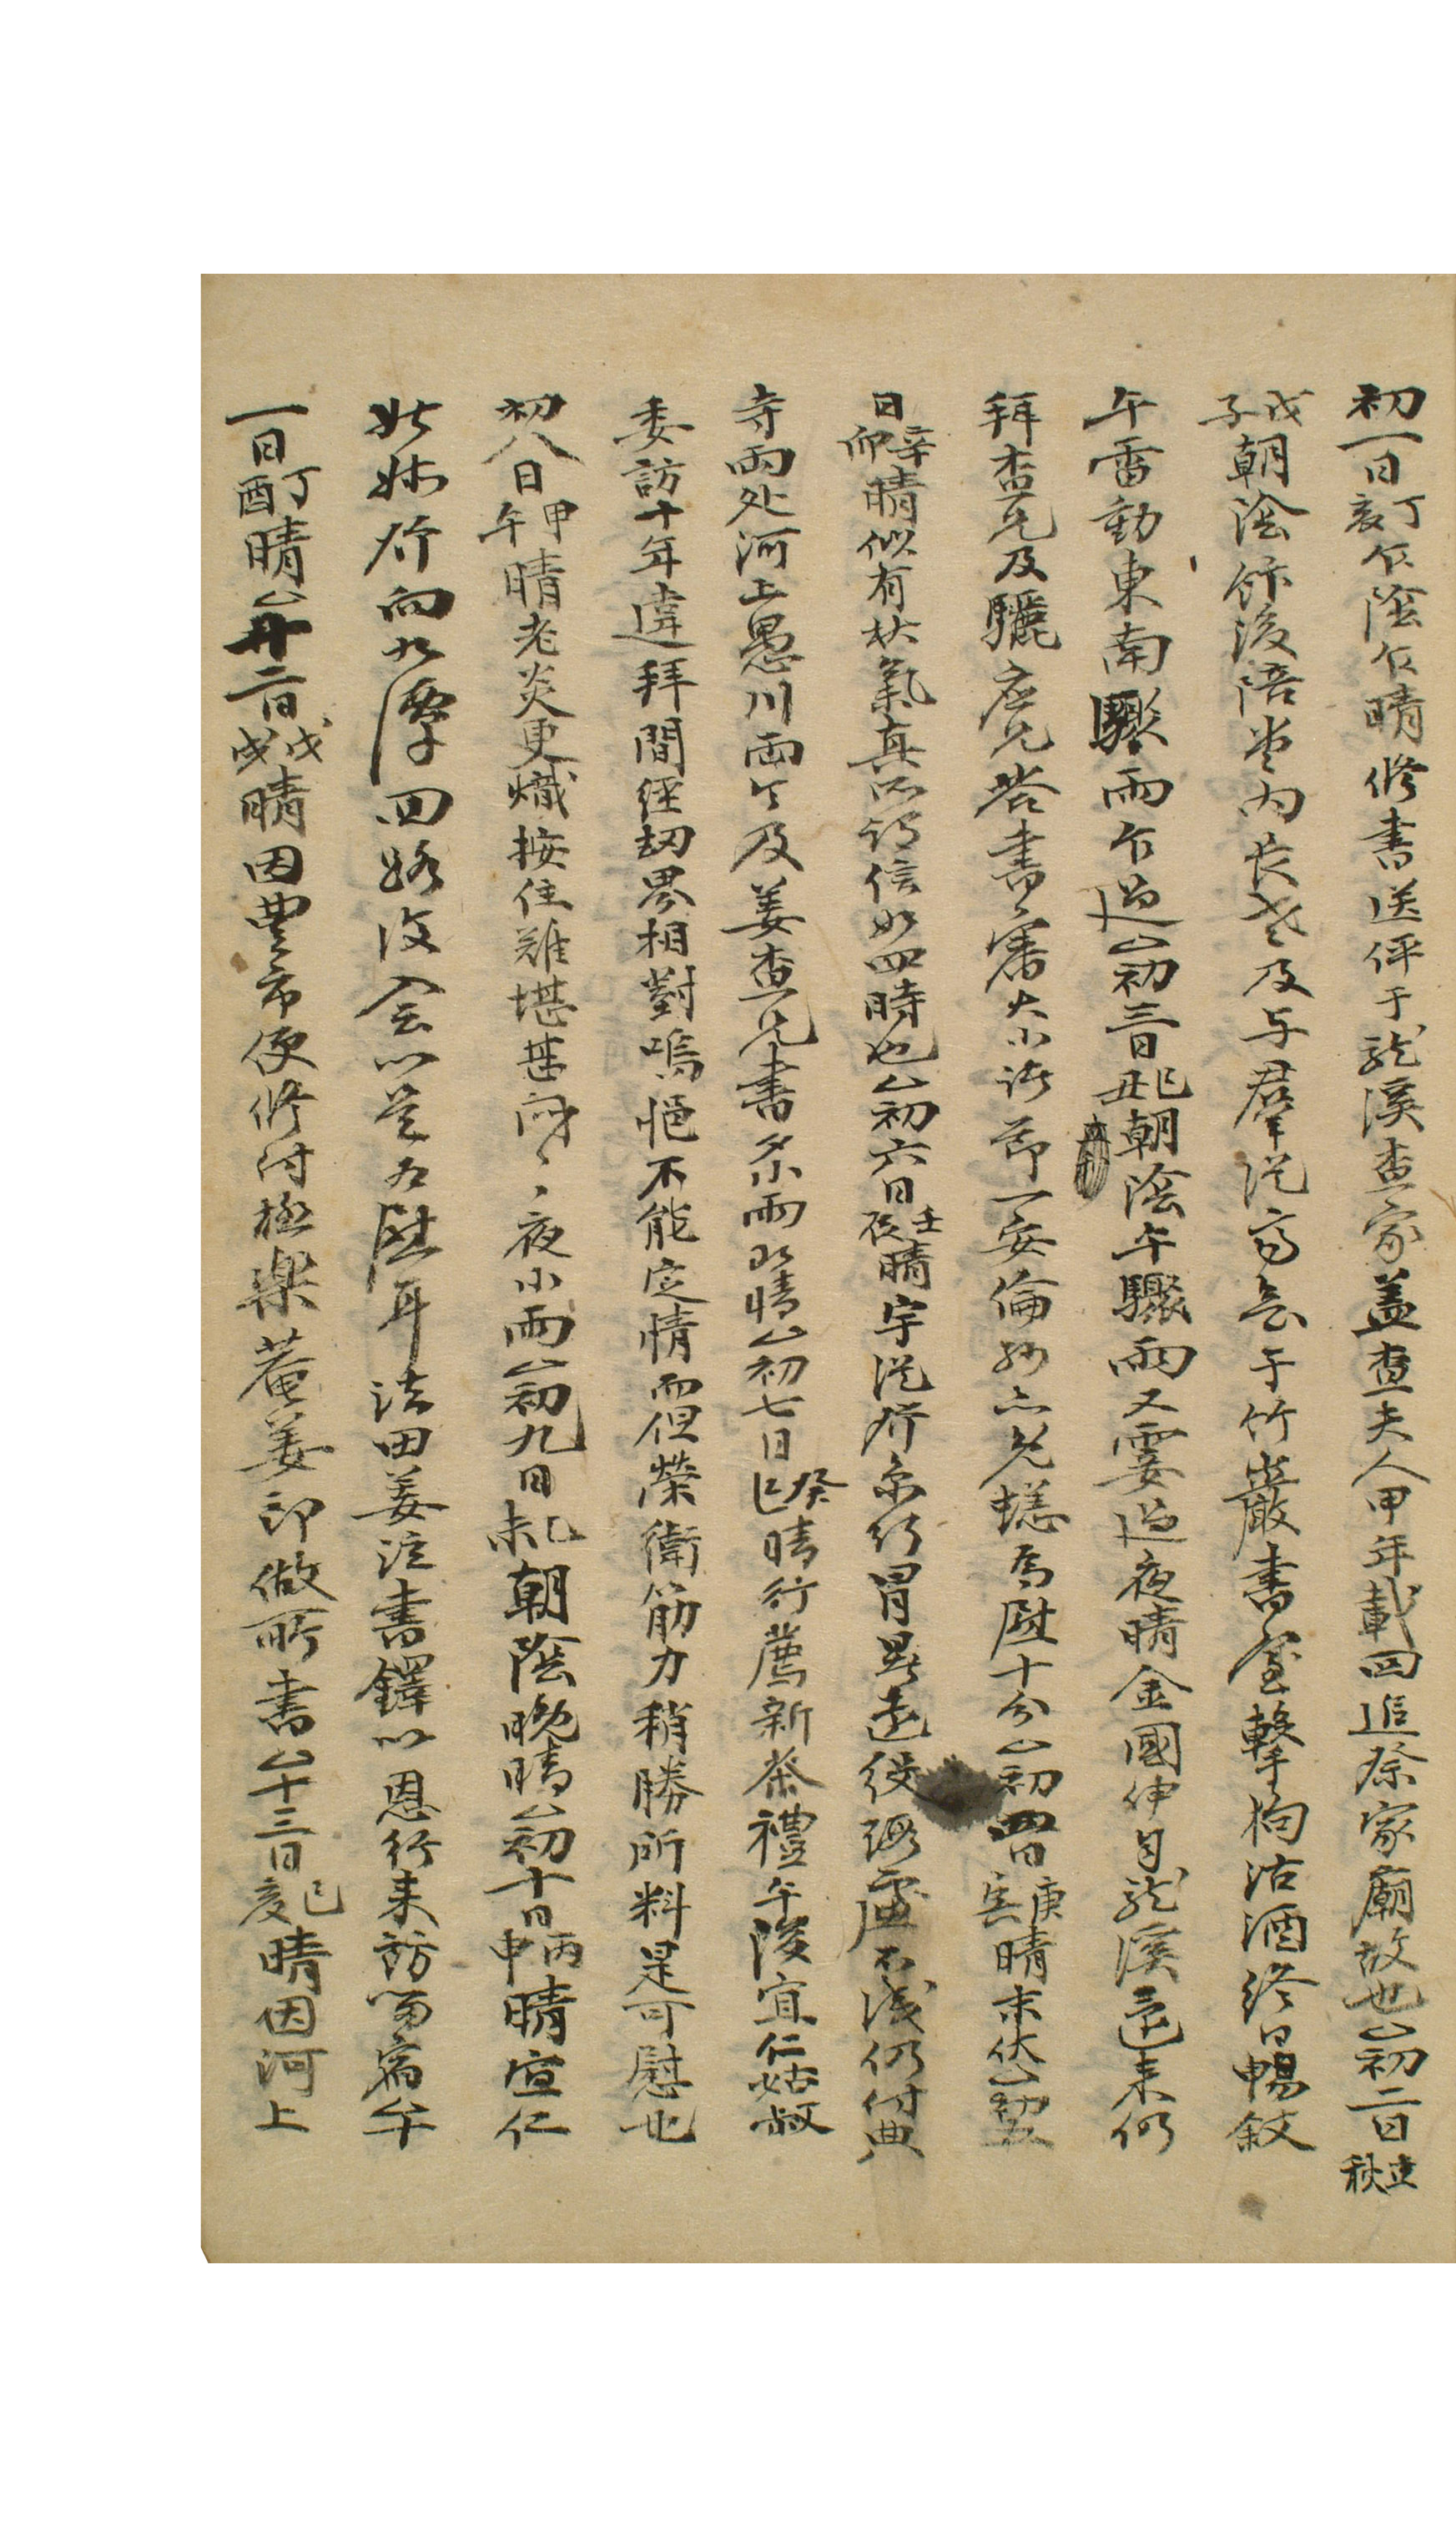 初一日丁亥乍陰乍晴修書送伻于龍溪査家盖査夫人甲年載回追祭家廟故也△初二日立秋
戊子朝陰餘後陪堂內長老及与羣從齊會于竹巖書室擊狗沽酒終日暢敍
午雷動東南驟雨乍過△初三日己丑朝陰午驟雨又霎過夜晴金國伸自龍溪還来仍
拜査兄及驪庄兄答書審大小諸節一安倫兒蟋焉慰十分△初四日庚寅晴末伏△初五
日辛卯晴似有秋氣真所謂信如四時也△初六日壬辰晴宇從行冒暑遠役慮不淺仍付典
寺兩处河上愚川兩及姜査兄書夕小雨晴△初七日癸巳晴行薦新茶禮午後宜仁姑叔
委訪十年違拜間經劫界相對嗚悒不能定情而但榮衛筋力稍勝所料是可慰也
初八日甲午晴老炎更熾接住難堪甚悶ヽ夜小雨△初九日乙未朝陰晚晴△初十日丙申晴宜仁
姊妹行向九潭回路後会以是為慰耳法田姜注書鐸以恩行来訪留宿午
一日丁酉晴△十二日戊戌晴因豊市便修付極樂菴姜郎做所書△十三日己亥晴因河上